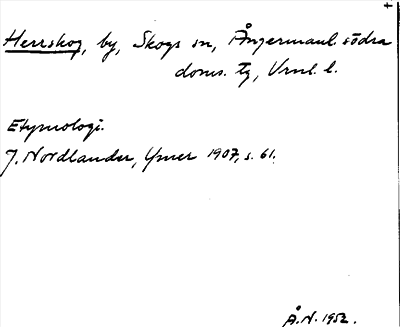 Herrskog, by, Skogs sn, Ångermanl. södra
doms. tg, Vrnl. l.
Etymologi.
J. Nordlander, Ymer 1907, s. 61.
Å.N. 1952.